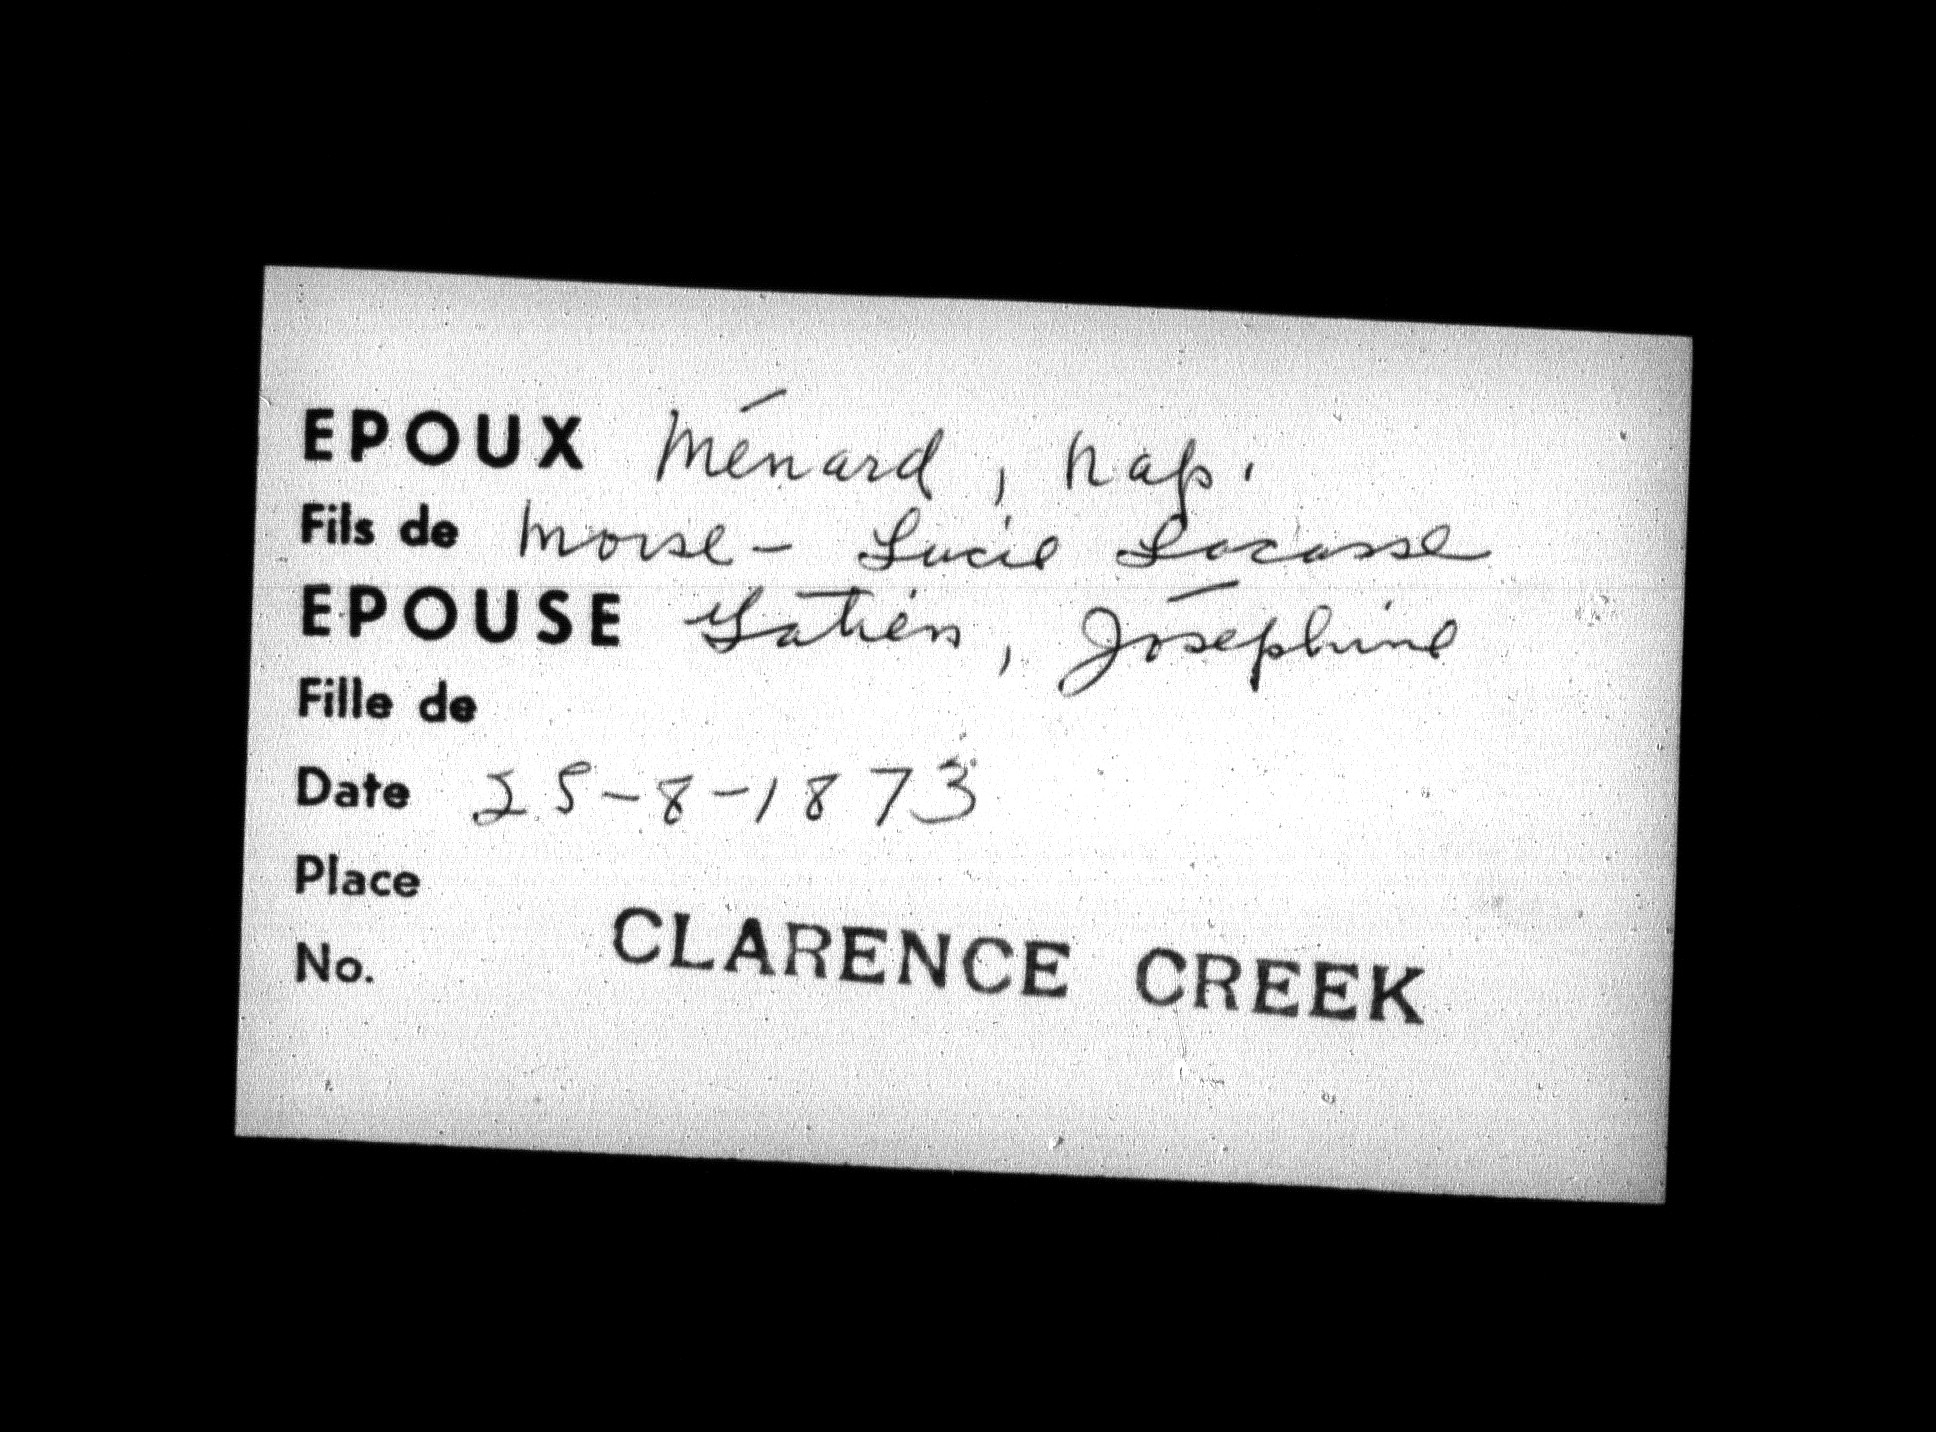 EPOUX Ménard, Nap.
Fils de Moise - Lucie Lacasse
EPOUSE Gatien, Joséphine
Fille de
Date 25-8-1873
Place
No. CLARENCE CREEK